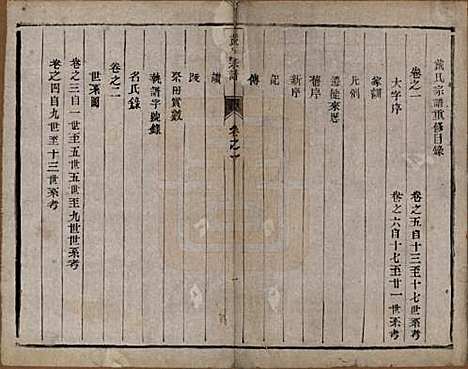 黃氏宗譜重修目錄
卷之一
大字序
家訓
凡例
遷徙來歷
舊序
新序
記
傳
卷之五自十三至十七世系考
卷之六自十七至廿一世系考
黃氏宗譜
卷之一
一
讚
跋
祭田實數
執譜字號錄
名氏錄
卷之二
世系圖
卷之三自一世至五世五世至九世世系考
卷之四自九世至十三世系考